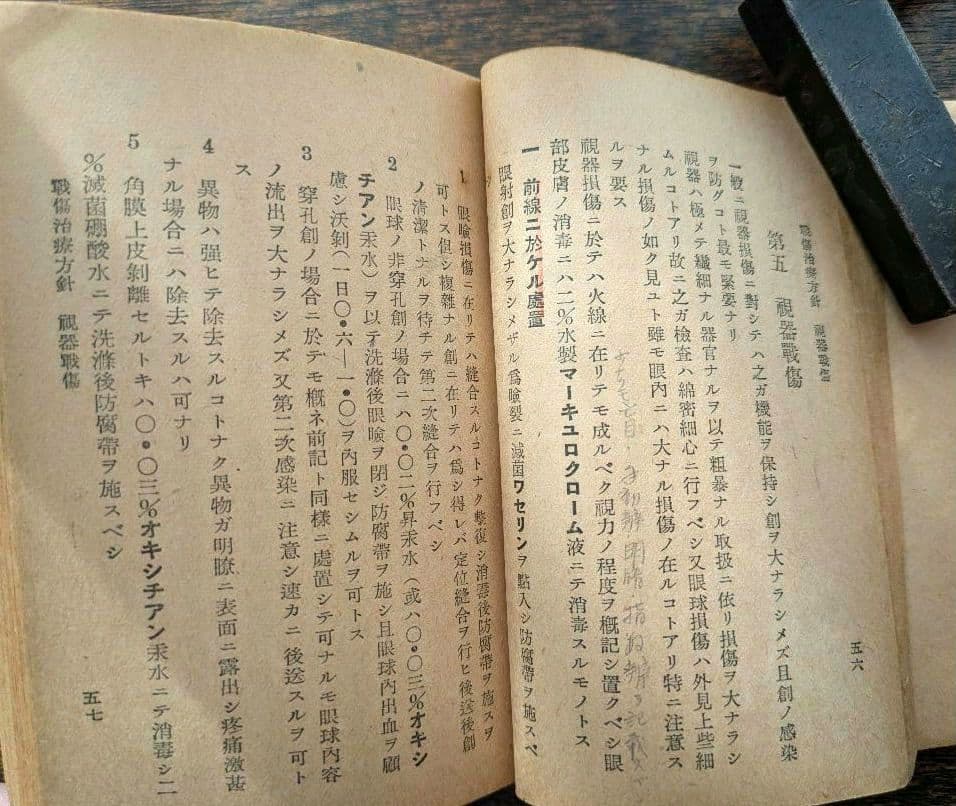 戰傷治療方針 視器戰傷
第五 視器戰傷
一般ニ視器損傷ニ對シテハ之ガ機能ヲ保持シ創ヲ大ナラシメズ且創ノ感染
ヲ防グコト最モ緊要ナリ
視器ハ極メテ纎細ナル器官ナルヲ以テ粗暴ナル取扱ニ依リ損傷ヲ大ナラシ
ムルコトアリ故ニ之ガ檢査ハ綿密細心ニ行フベシ又眼球損傷ハ外見上些細
ナル損傷ノ如ク見ユト雖モ眼內ニハ大ナル損傷ノ在ルコトアリ特ニ注意ス
ルヲ要ス
視器損傷ニ於テハ火線ニ在リテモ成ルベク視力ノ程度ヲ槪記シ置クベシ眼
部皮膚ノ消毒ニハ二%水製マーキユロクローム液ニテ消毒スルモノトス
一 前線ニ於ケル處置
眼射創ヲ大ナラシメザル爲瞼裂ニ滅菌ワセリンヲ點入シ防腐帶ヲ施スベ
シ
五六
1 眼瞼損傷ニ在リテハ縫合スルコトナク整復シ消毒後防腐帶ヲ施スヲ
可トス但シ複雜ナル創ニ在リテハ爲シ得レバ定位縫合ヲ行ヒ後送後創
ノ淸潔トナルヲ待チテ第二次縫合ヲ行フベシ
2 眼球ノ非穿孔創ノ場合ニハ〇・〇二%昇汞水(或ハ〇・〇三%オキシ
チアン汞水)ヲ以テ洗滌後眼瞼ヲ閉ジ防腐帶ヲ施シ且眼球內出血ヲ顧
慮シ沃剝(一日〇・六—一・〇)ヲ內服セシムルヲ可トス
3 穿孔創ノ場合ニ於テモ槪ネ前記ト同樣ニ處置シテ可ナルモ眼球內容
ノ流出ヲ大ナラシメズ又第二次感染ニ注意シ速カニ後送スルヲ可ト
ス
4 異物ハ强ヒテ除去スルコトナク異物ガ明瞭ニ表面ニ露出シ疼痛激甚
ナル場合ニハ除去スルハ可ナリ
5 角膜上皮剝離セルトキハ〇・〇三%オキシチアン汞水ニテ消毒シ二
%滅菌硼酸水ニテ洗滌後防腐帶ヲ施スベシ
戰傷治療方針 視器戰傷
五七